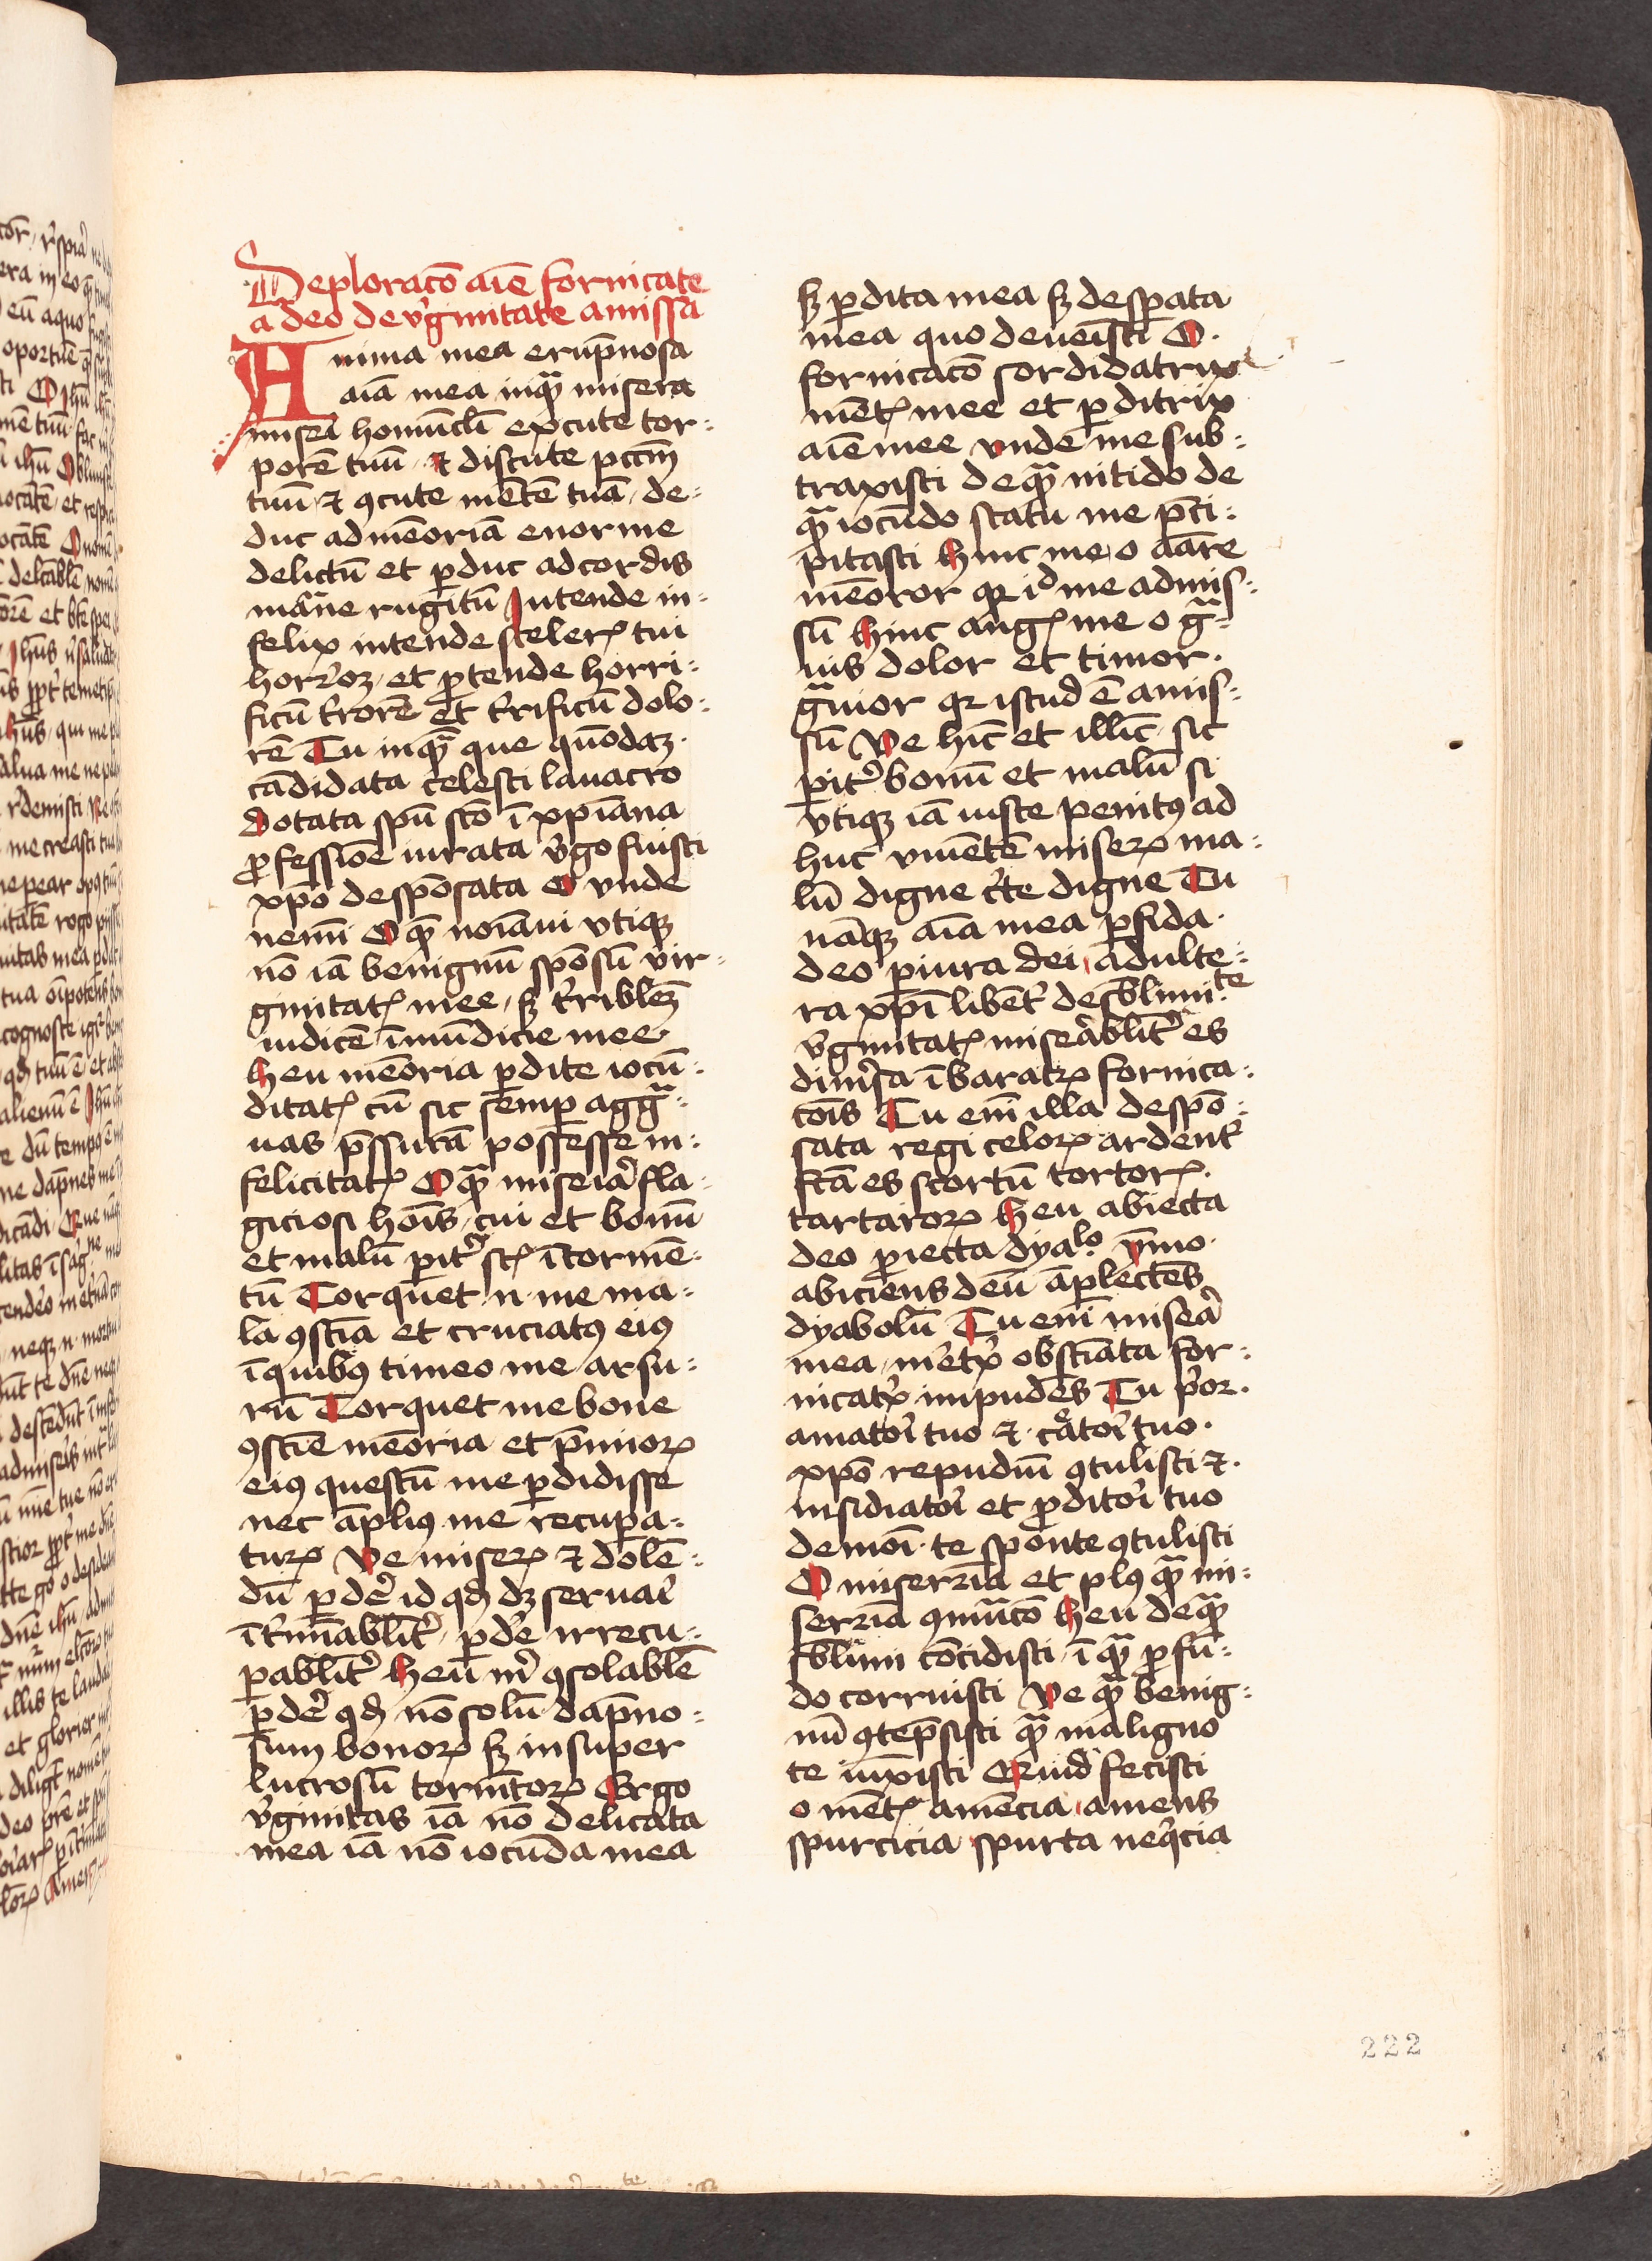 Deploracō aīe fornicate
a deo de v̓ginitate amissa
Anima mea erūpnosa
aīa mea inqᷓ misera
mis̓ei homūcl̄i excute tor⸗
porē tuū ⁊ discute pcc̄m
tuū ⁊ ꝯcute mētē tuā de⸗
duc ad mēoriā enorme
delictū et ꝑduc ad cordis
māne rugitū Intende in⸗
felix intende sceleꝝ tui
horꝛoꝫ et ꝓtende horri⸗
ficū t̓rorē et t̓rificū dolo⸗
rē Tu inqᷓ que quōdaꝫ
cādidata celesti lauacro
dotata spū scō ī xp̄iana
ꝓfessiōe iurata v̓go fuisti
xp̄o despōsata O vnde
nemī O qᷓ noīaui vtiqꝫ
nō iā benignū spōsū vir⸗
ginitatꝭ mee sꝫ t̓ribleꝫ
iudicē īmūdicie mee
heu mēoria ꝑdite iocū⸗
ditatꝭ cū sic semꝑ aggᷓ⸗
uas p̄ssurā possesse in⸗
felicitatꝭ O qᷓ mis̓eia fla⸗
giciosi hoīs cui et bonū
et malū pit̓ sꝭ ī tormē⸗
tū Torquet n me ma⸗
la ꝯsciā et cruciatꝰ eiꝰ
ī quibꝰ timeo me arsu⸗
rū Torquet me bone
ꝯsciē mēoria et p̄mioꝝ
eiꝰ questū me ꝑdidisse
nec āpliꝰ me recupa⸗
tuꝝ Ve miseꝝ ⁊ dolē⸗
dū ꝑde̓ id qđ dꝫ seruai̓
īt̓minabl̄it̓ ꝑde̓ irrecu⸗
pabl̄it̓ heu ī ꝯsolablē
ꝑde̓ qđ nō solū dāpno⸗
sum bonoꝝ sꝫ insuper
lucrosū tormētoꝝ Ergo
v̓ginitas iā nō delicata
mea iā nō iocūda mea
sꝫ ꝑdita mea sꝫ despata
mea quo deueīsti O
fornicacō sordidatrix
mētꝭ mee et ꝑditrix
aīe mee vnde me sub⸗
traxisti de qᷓ nitido de
qᷓ iocūdo statu me p̄ci⸗
pitasti hinc me o aāre
mēoror qꝛ id me admis⸗
sū hinc angꝭ me o gᷓ⸗
uis dolor et timor
gᷓuior qꝛ istud ē amis⸗
sū Ve hīc et illīc sic
pit̓ bonū et malū si
vtiqꝫ iā iuste penitꝰ ad
huc viuētē miseꝝ ma⸗
lū digne c̓te digne Tu
nāqꝫ aīa mea ꝑfida
deo ꝑiura dei adulte⸗
ra xp̄i libēt̓ de s̄blimi⸗te
v̓ginitatꝭ miseābl̄it̓ es
dim̓sa ī baratꝝ fornica⸗
cōis Tu em̄ illa despō⸗
sata regi celoꝝ ardent̓
fcā es scortū tortoꝝ
tartaroꝝ heu abiecta
deo ꝓiecta dyalo ymo
abiciens deū āplectēs
dyabolū Tu em̄ miseā
mea m̓etx obstīata for⸗
nicatx̓ impudēs Tu p̓or
amatoi̓ tuo ⁊ cᷓatoi̓ tuo
xp̄o repudiū ꝯtulisti ⁊
insidiatoi̓ et ꝓditoi̓ tuo
demoī te sponte ꝯtulisti
O miserꝛia et plꝰ qᷓ mi⸗
serꝛia ꝯmutacō heu de qᷓ
s̄blimi cōcidisti ī qᷓ ꝓfū⸗
do corruisti Ve qᷓ benig⸗
nū ꝯtēpsisti qᷓ maligno
te iūxisti Quid fecisti
o mētꝭ amēcia amens
spurcicia spurca neqͥcia
222